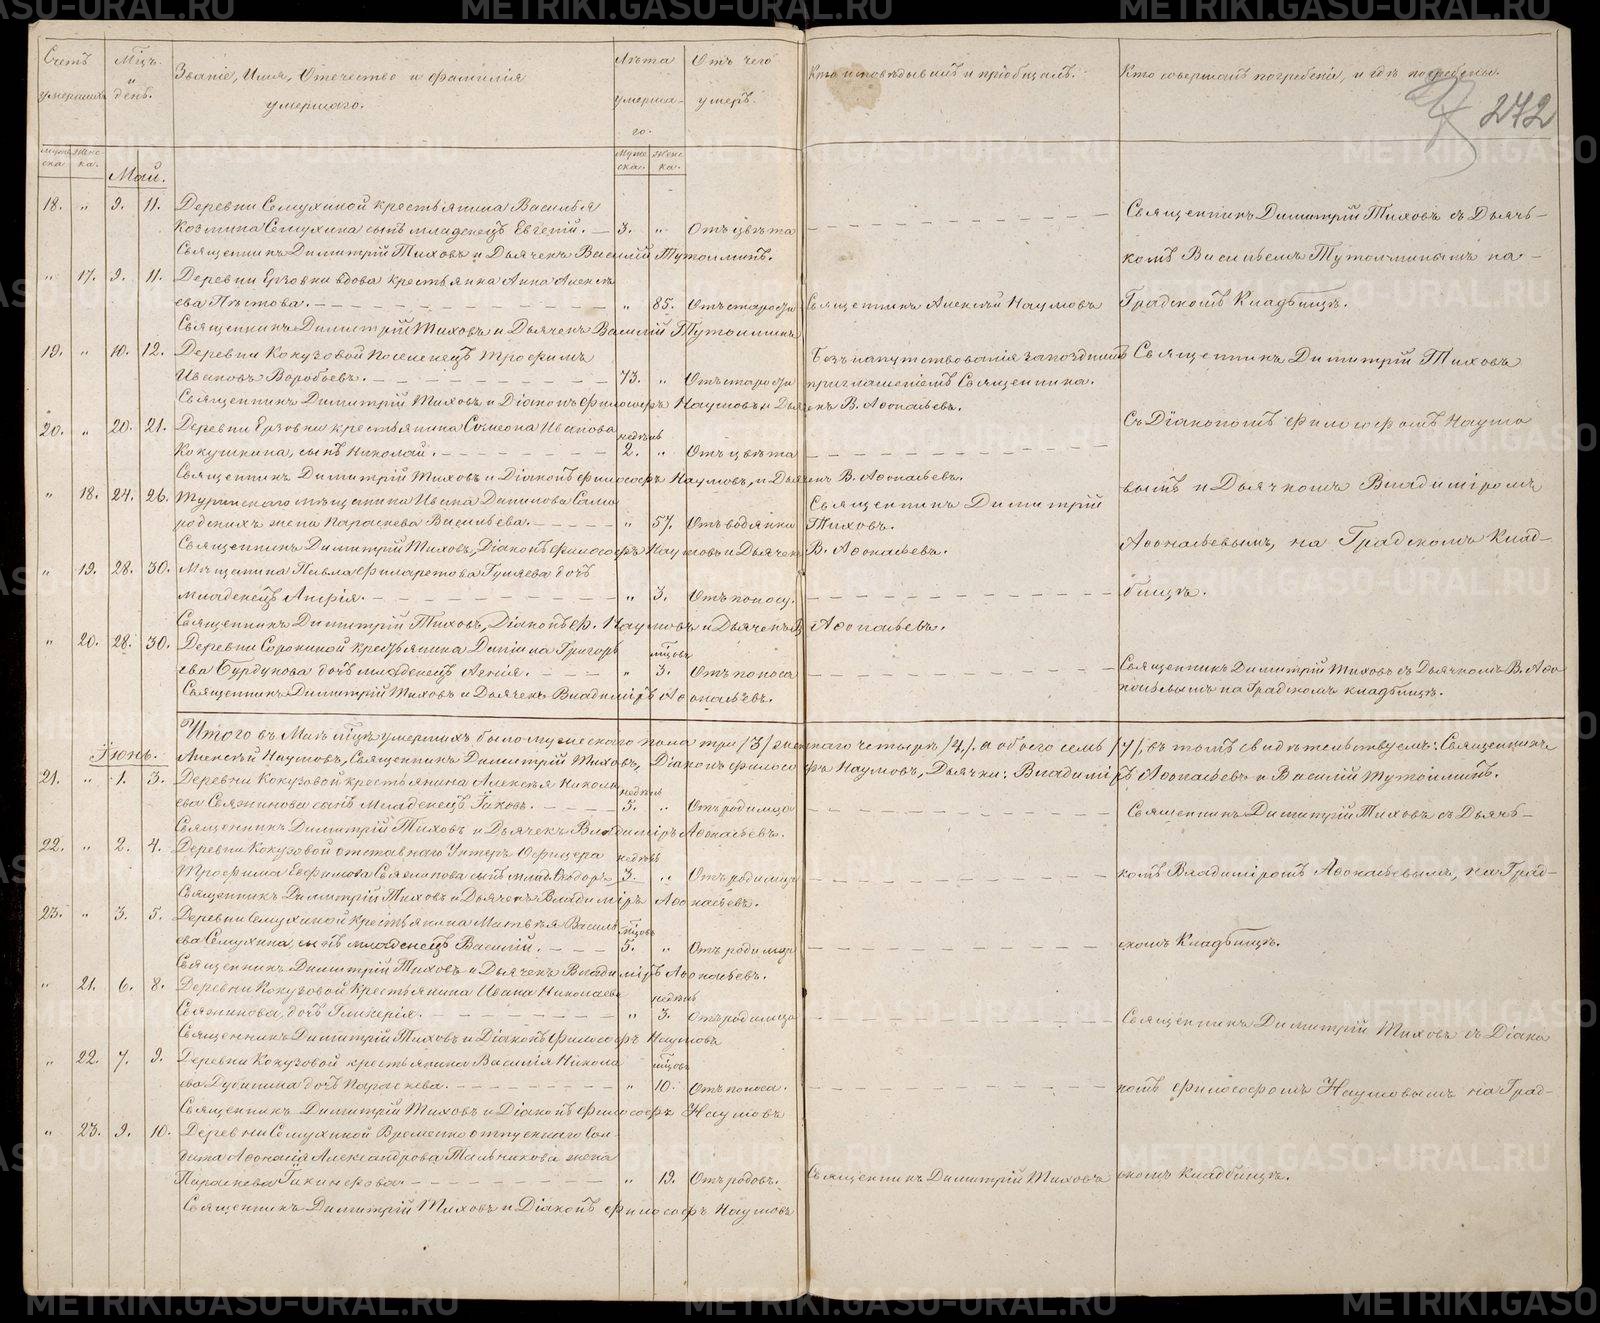 Счетъ умершихъ.
Мѣсяц. и день.
Званіе, Имя, Отечество и фамилія умершаго.
Лѣта умершаго.
Отъ чего умеръ.
Кто исповѣдывалъ и пріобщалъ.
Кто совершалъ погребеніе, и гдѣ погребены.
272
Мужеска. Женска.
Мужеска. Женска.
Май.
18. " 9. 11. Деревни Семухиной крестьянина Василья
Козмина Семухина сынъ младенецъ Евгеній. 3. " Отъ цвѣта
Священникъ Димитрій Тиховъ и Дьячекъ Василій Тутолминъ.
Священникъ Димитрій Тиховъ съ Дьячь-
комъ Васильемъ Тутолминымъ на
Градскомъ Кладбищѣ.
" 17. 9. 11. Деревни Ерзовки вдова крестьянка Анна Алексѣ
ева Пѣстова. " 85. Отъ старости Священникъ Алексѣй Наумовъ
Священникъ Димитрій Тиховъ и Дьячекъ Василій Тутолминъ
19. " 10. 12. Деревни Кокузовой Поселенецъ Трофимъ
Ивановъ Воробьевъ. 73. " Отъ старости
Безъ напутствованія запозднимъ
приглашеніемъ Священника.
Священникъ Димитрій Тиховъ и Діаконъ Философъ Наумовъ и Дьячекъ В. Афонасьевъ.
Священникъ Димитрій Тиховъ
Съ Діакономъ Философомъ Наумо
вымъ и Дьячкомъ Владиміромъ
Афонасьевымъ, на Градскомъ Клад-
бищѣ.
20. " 20. 21. Деревни Ерзовки крестьянина Симеона Иванова
Кокушкина, сынъ Николай. недѣль 2. " Отъ цвѣта
Священникъ Димитрій Тиховъ и Діаконъ Философъ Наумовъ, и Дьячекъ В. Афонасьевъ.
" 18. 24. 26. Туринскаго мѣщанина Ивана Данилова Само
родскихъ жена Параскева Васильева. " 57. Отъ водянки
Священникъ Димитрій
Тиховъ.
Священникъ Димитрій Тиховъ, Діаконъ Философъ Наумовъ и Дьячекъ В. Афонасьевъ.
" 19. 28. 30. Мѣщанина Павла Филаретова Гуляева дочь
младенецъ Анфія. " 3. Отъ поносу.
Священникъ Димитрій Тиховъ, Діаконъ Ф. Наумовъ и Дьячекъ В. Афонасьевъ.
" 20. 28. 30. Деревни Сорокиной крестьянина Даніила Григорь
ева Бурдукова дочь младенецъ Агнія. мѣсяцовъ 3. Отъ поноса
Священникъ Димитрій Тиховъ и Дьячекъ Владиміръ Афонасьевъ.
Священникъ Димитрій Тиховъ съ Дьячкомъ В. Афо
насьевымъ на Градскомъ кладбищѣ.
Итого въ Маѣ мѣсяцѣ умершихъ было мужескаго пола три /3/ женскаго четыре /4/. а обоего семь /7/, въ томъ свидѣтельствуемъ: Священникъ
Алексѣй Наумовъ, Священникъ Димитрій Тиховъ, Діаконъ Философъ Наумовъ, Дьячки: Владиміръ Афонасьевъ и Василій Тутолминъ.
Іюнь.
21. " 1. 3. Деревни Кокузовой крестьянина Алексѣя Никола
ева Сляжинова сынъ Младенецъ Іаковъ. недѣль 5. " Отъ родимца
Священникъ Димитрій Тиховъ и Дьячекъ Владиміръ Афонасьевъ.
Священникъ Димитрій Тиховъ съ Дьячь-
комъ Владиміромъ Афонасьевымъ, на Град-
скомъ Кладбищѣ.
22. " 2. 4. Деревни Кокузовой отставнаго Унтеръ Офицера
Трофима Евфимова Сляжинова сынъ млад. Ѳеодоръ, недѣль 3. " Отъ родимца
Священникъ Димитрій Тиховъ и Дьячекъ Владиміръ Афонасьевъ.
23. " 3. 5. Деревни Семухиной крестьянина Матвѣя Василь
ева Семухина, сынъ младенецъ Василій. мѣсяцовъ 5. " Отъ родимца
Священникъ Димитрій Тиховъ и Дьячекъ Владиміръ Афонасьевъ.
" 21. 6. 8. Деревни Кокузовой крестьянина Ивана Николаева
Сляжинова, дочь Гликерія. недѣль " 3. Отъ родимца
Священникъ Димитрій Тиховъ и Діаконъ Философъ Наумовъ
Священникъ Димитрій Тиховъ съ Діако
номъ Философомъ Наумовымъ на Град-
скомъ кладбищѣ.
" 22. 7. 9. Деревни Кокузовой крестьянина Василія Никола
ева Дубинина дочь Параскева. мѣсяцовъ " 10. Отъ поноса.
Священникъ Димитрій Тиховъ и Діаконъ Философъ Наумовъ
" 23. 9. 10. Деревни Семухиной Временно отпускнаго Сол-
дата Афонасія Александрова Тальникова жена
Параскева Никифорова " 19. Отъ родовъ. Священникъ Димитрій Тиховъ
Священникъ Димитрій Тиховъ и Діаконъ Философъ Наумовъ
METRIKI.GASO-URAL.RU